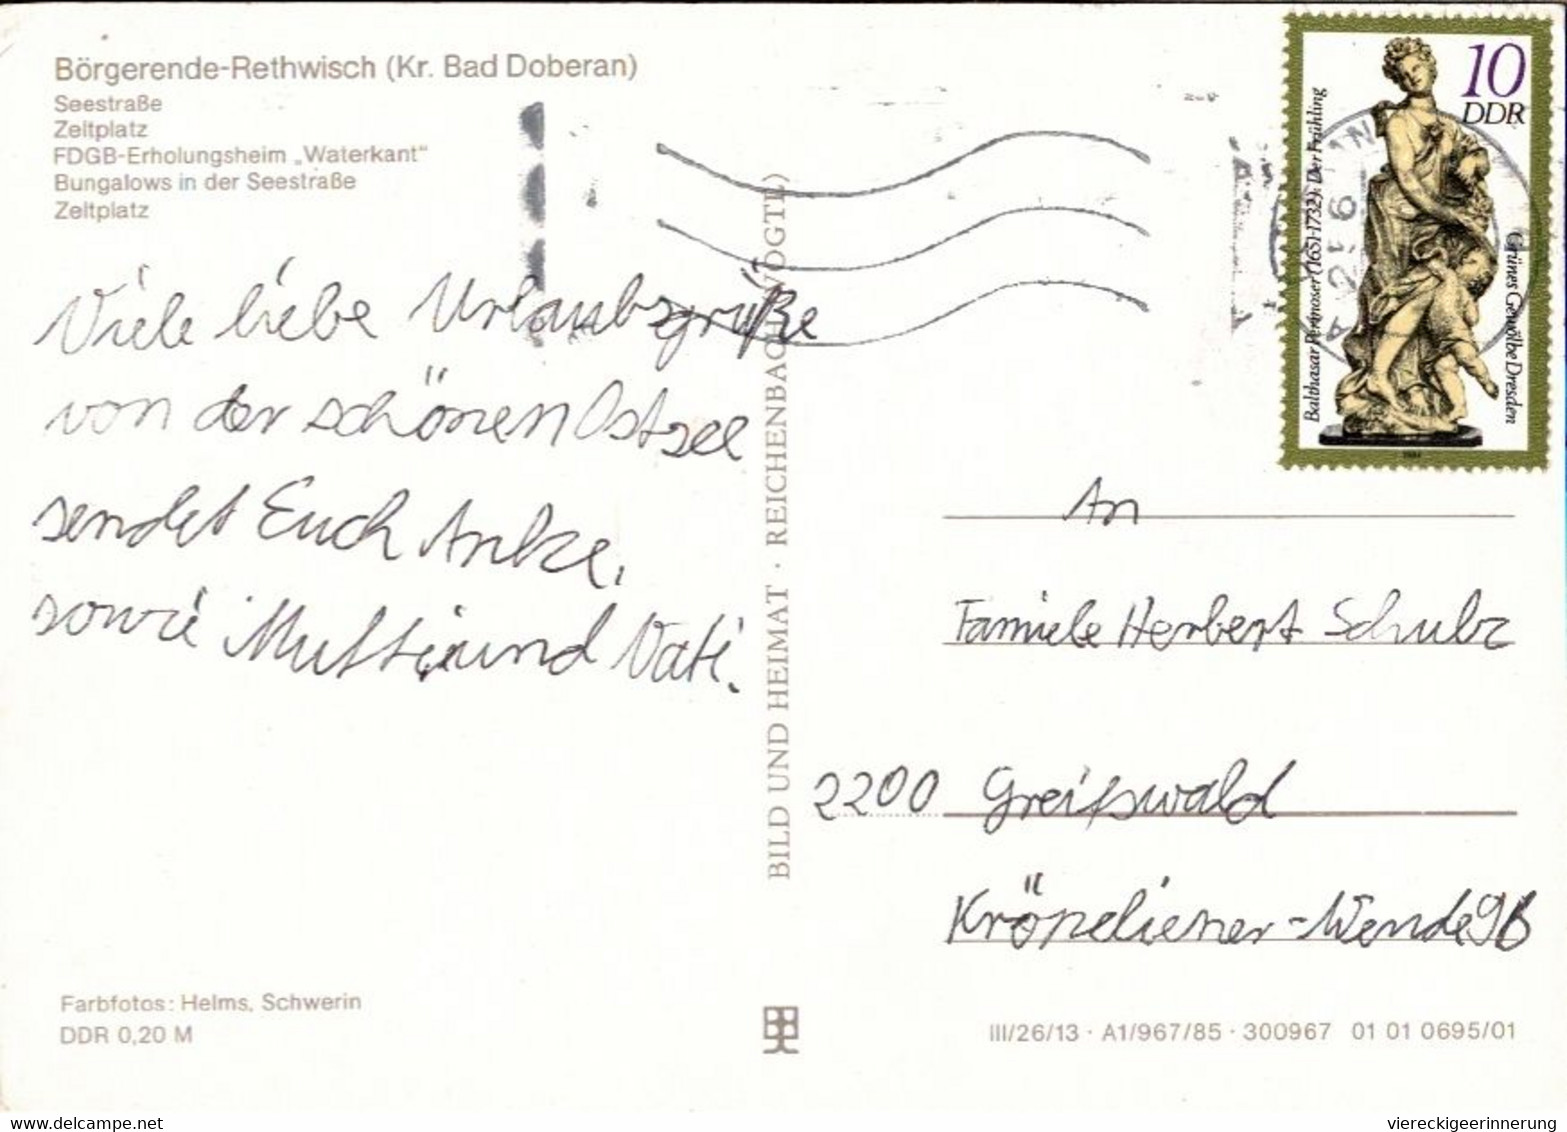 Börgerende-Rethwisch (Kr. Bad Doberan)
Seestraße
Zeltplatz
FDGB-Erholungsheim „Waterkant"
Bungalows in der Seestraße
Zeltplatz
Viele liebe Urlaubsgrüße
von der schönen Ostsee
sendet Euch Anke,
sowie Mutti und Vati.
Farbfotos: Helms, Schwerin
DDR 0,20 M
BILD UND HEIMAT · REICHENBACH (VOGTL)
10
DDR
Balthasar Permoser (1651-1732): Der Frühling
Grünes Gewölbe Dresden
1984
An
Familie Herbert Schulz
2200 Greifswald
Kröpeliener-Wende 9b
III/26/13 · A1/967/85 · 300967 01 01 0695/01
www.delcampe.net
viereckigeerinnerung